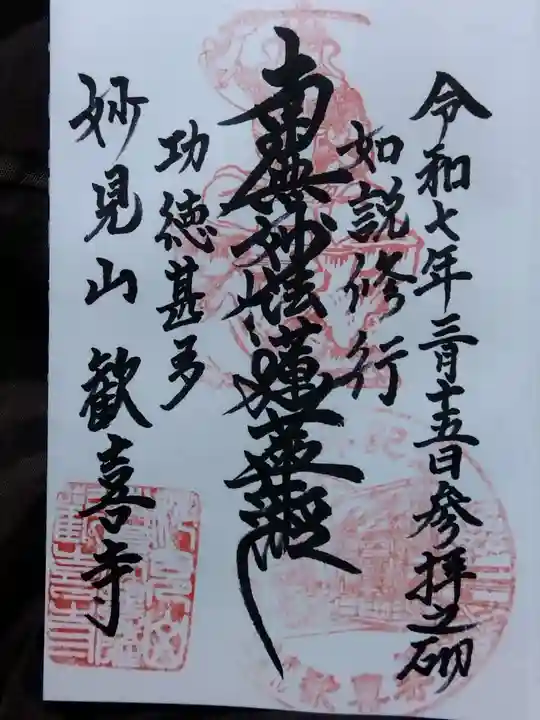 令和七年三月十五日参拝之砌
如説修行
南無妙法蓮華経
功徳甚多
妙見山 歓喜寺